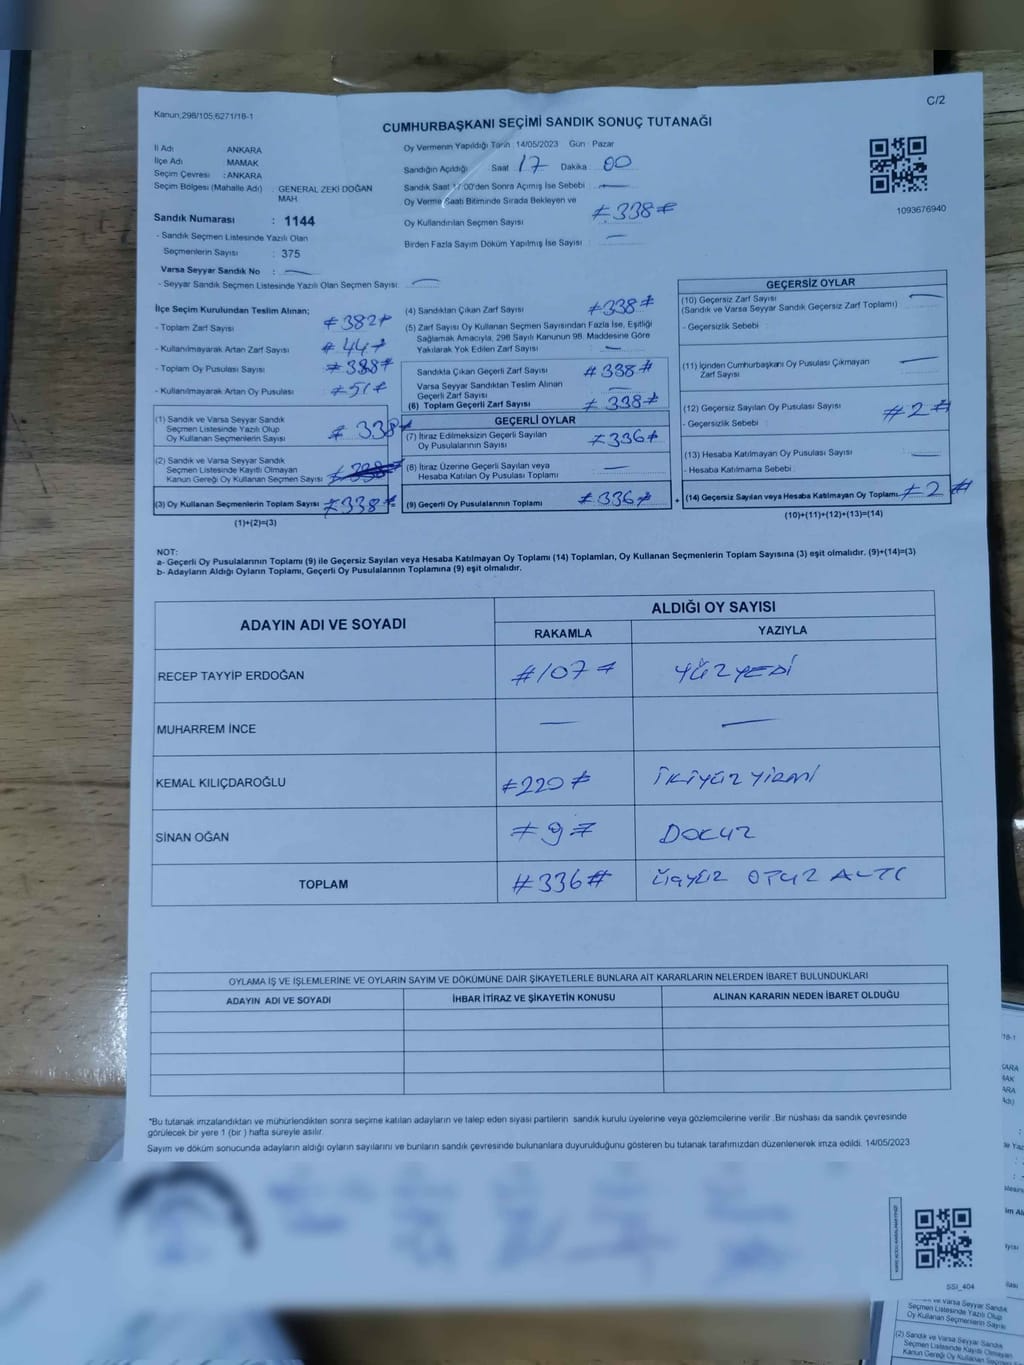 C/2
Kanun,298/105,6271/18-1
CUMHURBAŞKANI SEÇİMİ SANDIK SONUÇ TUTANAĞI
İl Adı ANKARA
İlçe Adı MAMAK
Seçim Çevresi : ANKARA
Seçim Bölgesi (Mahalle Adı) : GENERAL ZEKİ DOĞAN MAH.
Sandık Numarası : 1144
- Sandık Seçmen Listesinde Yazılı Olan
Seçmenlerin Sayısı : 375
Varsa Seyyar Sandık No : —
- Seyyar Sandık Seçmen Listesinde Yazılı Olan Seçmen Sayısı: —
Oy Vermenin Yapıldığı Tarih 14/05/2023 Gün : Pazar
Sandığın Açıldığı Saat 17 Dakika 00
Sandık Saat 17:00'den Sonra Açımış İse Sebebi —
Oy Verme Saati Bitiminde Sırada Bekleyen ve
Oy Kullandırılan Seçmen Sayısı ≠338≠
Birden Fazla Sayım Döküm Yapılmış İse Sayısı —
1093676940
İlçe Seçim Kurulundan Teslim Alınan;
- Toplam Zarf Sayısı ≠382≠
- Kullanılmayarak Artan Zarf Sayısı #44≠
- Toplam Oy Pusulası Sayısı ≠388≠
- Kullanılmayarak Artan Oy Pusulası ≠51≠
(1) Sandık ve Varsa Seyyar Sandık
Seçmen Listesinde Yazılı Olup
Oy Kullanan Seçmenlerin Sayısı ≠ 338≠
(2) Sandık ve Varsa Seyyar Sandık
Seçmen Listesinde Kayıtlı Olmayan
Kanun Gereği Oy Kullanan Seçmen Sayısı
(3) Oy Kullanan Seçmenlerin Toplam Sayısı ≠338≠
(1)+(2)=(3)
(4) Sandıktan Çıkan Zarf Sayısı ≠338≠
(5) Zarf Sayısı Oy Kullanan Seçmen Sayısından Fazla İse, Eşitliği
Sağlamak Amacıyla, 298 Sayılı Kanunun 98. Maddesine Göre
Yakılarak Yok Edilen Zarf Sayısı —
Sandıkla Çıkan Geçerli Zarf Sayısı #338≠
Varsa Seyyar Sandıktan Teslim Alınan
Geçerli Zarf Sayısı —
(6) Toplam Geçerli Zarf Sayısı ≠ 338≠
GEÇERLİ OYLAR
(7) İtiraz Edilmeksizin Geçerli Sayılan
Oy Pusulalarının Sayısı ≠336≠
(8) İtiraz Üzerine Geçerli Sayılan veya
Hesaba Katılan Oy Pusulası Toplamı —
(9) Geçerli Oy Pusulalarının Toplamı ≠336≠
+
GEÇERSİZ OYLAR
(10) Geçersiz Zarf Sayısı —
(Sandık ve Varsa Seyyar Sandık Geçersiz Zarf Toplamı)
- Geçersizlik Sebebi :
(11) İçinden Cumhurbaşkanı Oy Pusulası Çıkmayan —
Zarf Sayısı
(12) Geçersiz Sayılan Oy Pusulası Sayısı #2#
- Geçersizlik Sebebi :
(13) Hesaba Katılmayan Oy Pusulası Sayısı —
- Hesaba Katılmama Sebebi :
(14) Geçersiz Sayılan veya Hesaba Katılmayan Oy Toplamı ≠2#
(10)+(11)+(12)+(13)=(14)
NOT:
a- Geçerli Oy Pusulalarının Toplamı (9) ile Geçersiz Sayılan veya Hesaba Katılmayan Oy Toplamı (14) Toplamları, Oy Kullanan Seçmenlerin Toplam Sayısına (3) eşit olmalıdır. (9)+(14)=(3)
b- Adayların Aldığı Oyların Toplamı, Geçerli Oy Pusulalarının Toplamına (9) eşit olmalıdır.
ADAYIN ADI VE SOYADI ALDIĞI OY SAYISI
RAKAMLA YAZIYLA
RECEP TAYYİP ERDOĞAN #107≠ YÜZYEDİ
MUHARREM İNCE — —
KEMAL KILIÇDAROĞLU ≠220≠ İKİYÜZYİRMİ
SİNAN OĞAN ≠9≠ DOKUZ
TOPLAM #336# ÜÇYÜZ OTUZ ALTI
OYLAMA İŞ VE İŞLEMLERİNE VE OYLARIN SAYIM VE DÖKÜMÜNE DAİR ŞİKAYETLERLE BUNLARA AİT KARARLARIN NELERDEN İBARET BULUNDUKLARI
ADAYIN ADI VE SOYADI İHBAR İTİRAZ VE ŞİKAYETİN KONUSU ALINAN KARARIN NEDEN İBARET OLDUĞU
*Bu tutanak imzalandıktan ve mühürlendikten sonra seçime katılan adayların ve talep eden siyasi partilerin sandık kurulu üyelerine veya gözlemcilerine verilir .Bir nüshası da sandık çevresinde
görülecek bir yere 1 (bir ) hafta süreyle asılır.
Sayım ve döküm sonucunda adayların aldığı oyların sayılarını ve bunların sandık çevresinde bulunanlara duyurulduğunu gösteren bu tutanak tarafımızdan düzenlenerek imza edildi. 14/05/2023
SSI_404
ve Varsa Seyyar Sandık
Seçmen Listesinde Yazılı Olup
Oy Kullanan Seçmenlerin Sayısı
(2) Sandık ve Varsa Seyyar Sandık
Seçmen Listesinde Kayıtlı Olmayan
Kanun Gereği Oy Kullanan Seçmen